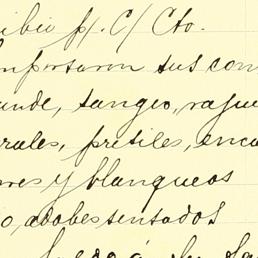 cibió p/. C/ Cto.
mportaron sus con
ande, tangeo, rajue
rales, pretiles, enca
ores y blanqueos
o, adobes sentados